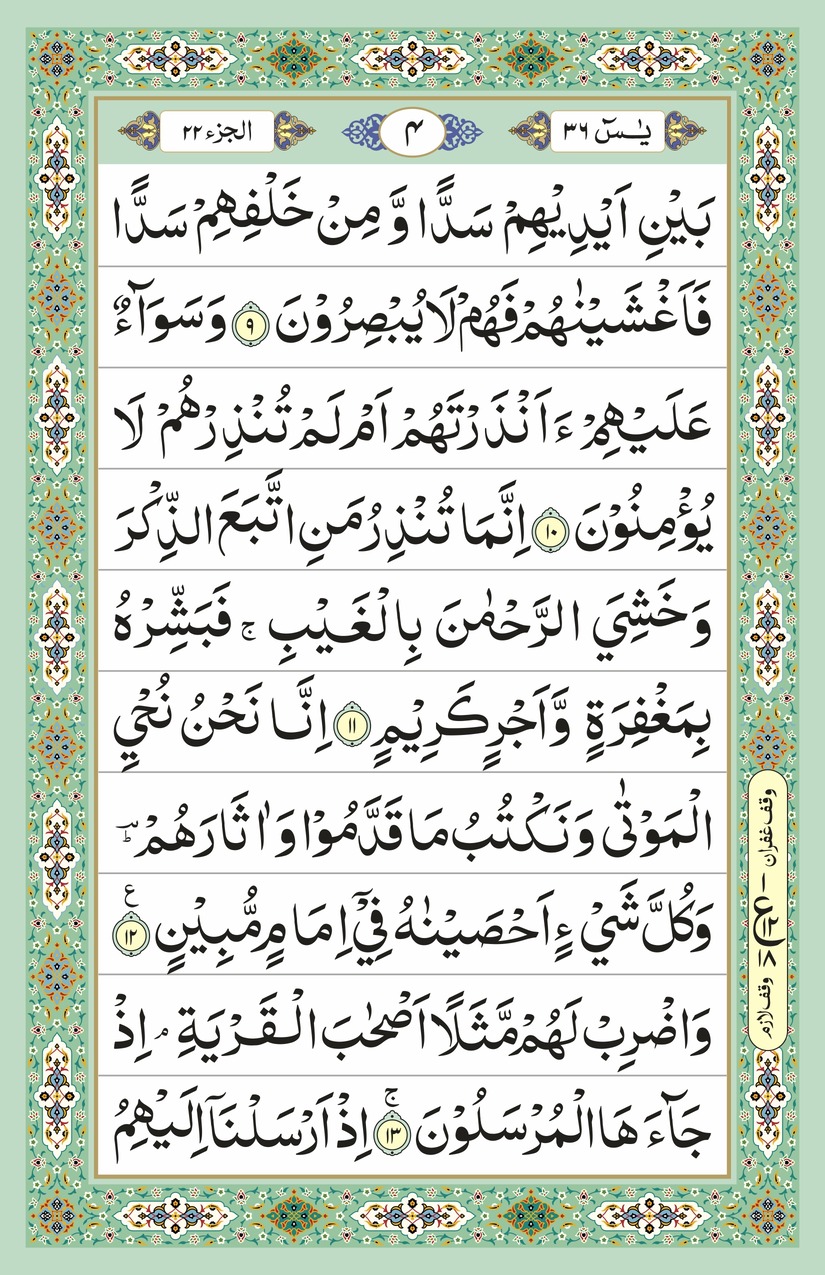 يٰسٓ ٣٦
۴
الجزء ٢٢
بَيْنِ اَيْدِيْهِمْ سَدًّا وَّ مِنْ خَلْفِهِمْ سَدًّا
فَاَغْشَيْنٰهُمْ فَهُمْ لَا يُبْصِرُوْنَ ٩ وَ سَوَآءٌ
عَلَيْهِمْ ءَاَنْذَرْتَهُمْ اَمْ لَمْ تُنْذِرْهُمْ لَا
يُؤْمِنُوْنَ ١٠ اِنَّمَا تُنْذِرُ مَنِ اتَّبَعَ الذِّكْرَ
وَ خَشِيَ الرَّحْمٰنَ بِالْغَيْبِ ۚ فَبَشِّرْهُ
بِمَغْفِرَةٍ وَّ اَجْرٍ كَرِيْمٍ ١١ اِنَّا نَحْنُ نُحْيِ
الْمَوْتٰى وَ نَكْتُبُ مَا قَدَّمُوْا وَ اٰثَارَهُمْ ؕ
وَ كُلَّ شَيْءٍ اَحْصَيْنٰهُ فِيْۤ اِمَامٍ مُّبِيْنٍ ١٢ ع
وَ اضْرِبْ لَهُمْ مَّثَلًا اَصْحٰبَ الْقَرْيَةِ ۘ اِذْ
جَآءَهَا الْمُرْسَلُوْنَ ١٣ ۚ اِذْ اَرْسَلْنَاۤ اِلَيْهِمُ
وقف غفران
ع
١٢
١٨
وقف لازم